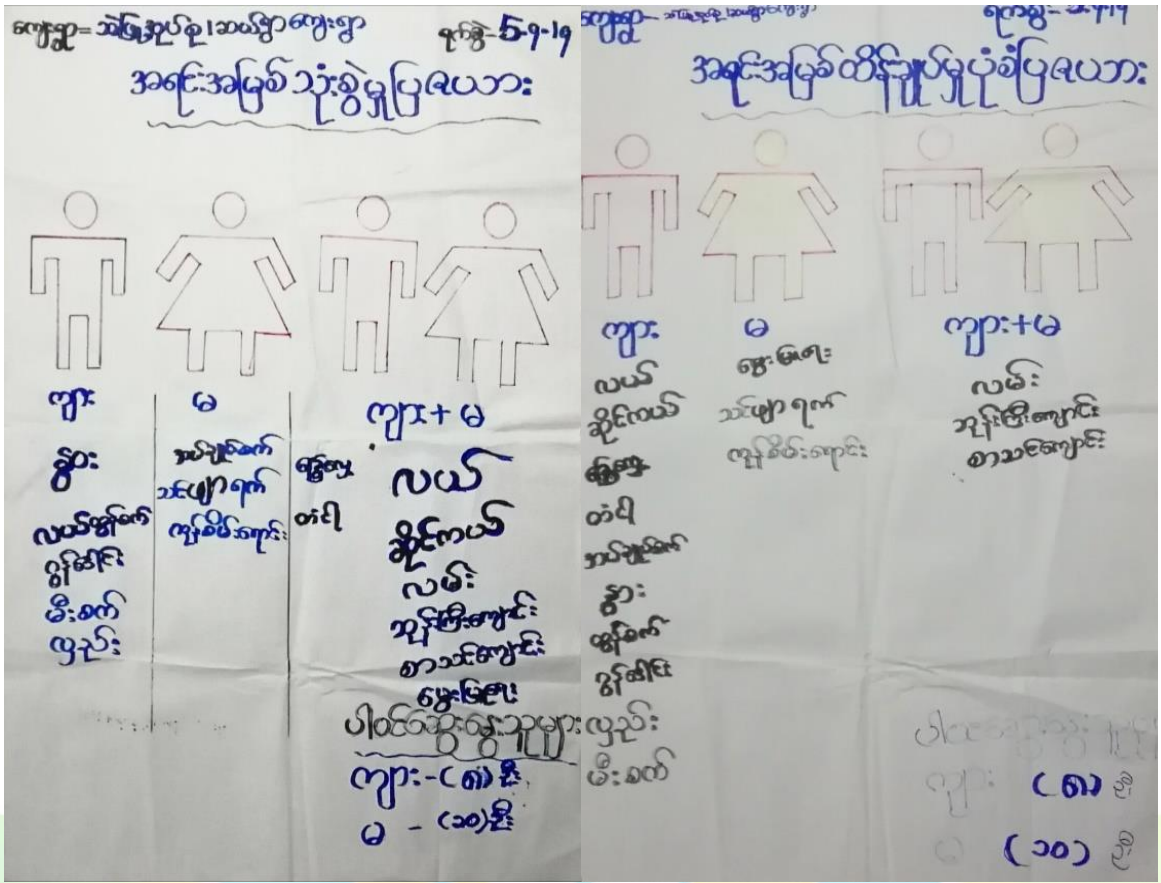 ကျေးရွာ= သဲဖြူအုပ်စု၊ ဆယ်ရွာကျေးရွာ
ရက်စွဲ-5-9-19
အရင်းအမြစ်သုံးစွဲမှုပြဇယား
ကျား
မ
ကျား+မ
နွား
လယ်ထွန်စက်
ဂွန်ဒေါင်း
မီးစက်
လှည်း
အပ်ချုပ်စက်
သင်ဖျာရက်
ကုန်စိမ်းရောင်း
တံငါ
လယ်
ဆိုင်ကယ်
လမ်း
ဘုန်းကြီးကျောင်း
စာသင်ကျောင်း
မွေးမြူရေး
ပါဝင်ဆွေးနွေးသူများ
ကျား-(၈)ဦး
မ -(၁၀)ဦး
အရင်းအမြစ်ထိန်းချုပ်မှုပုံစံပြဇယား
ကျား
မ
ကျား+မ
လယ်
ဆိုင်ကယ်
တံငါ
အပ်ချုပ်စက်
နွား
ထွန်စက်
ဂွန်ဒေါင်း
လှည်း
မီးစက်
မွေးမြူရေး
သင်ဖျာရက်
ကုန်စိမ်းရောင်း
လမ်း
ဘုန်းကြီးကျောင်း
စာသင်ကျောင်း
ကျား (၈) ဦး
မ (၁၀) ဦး